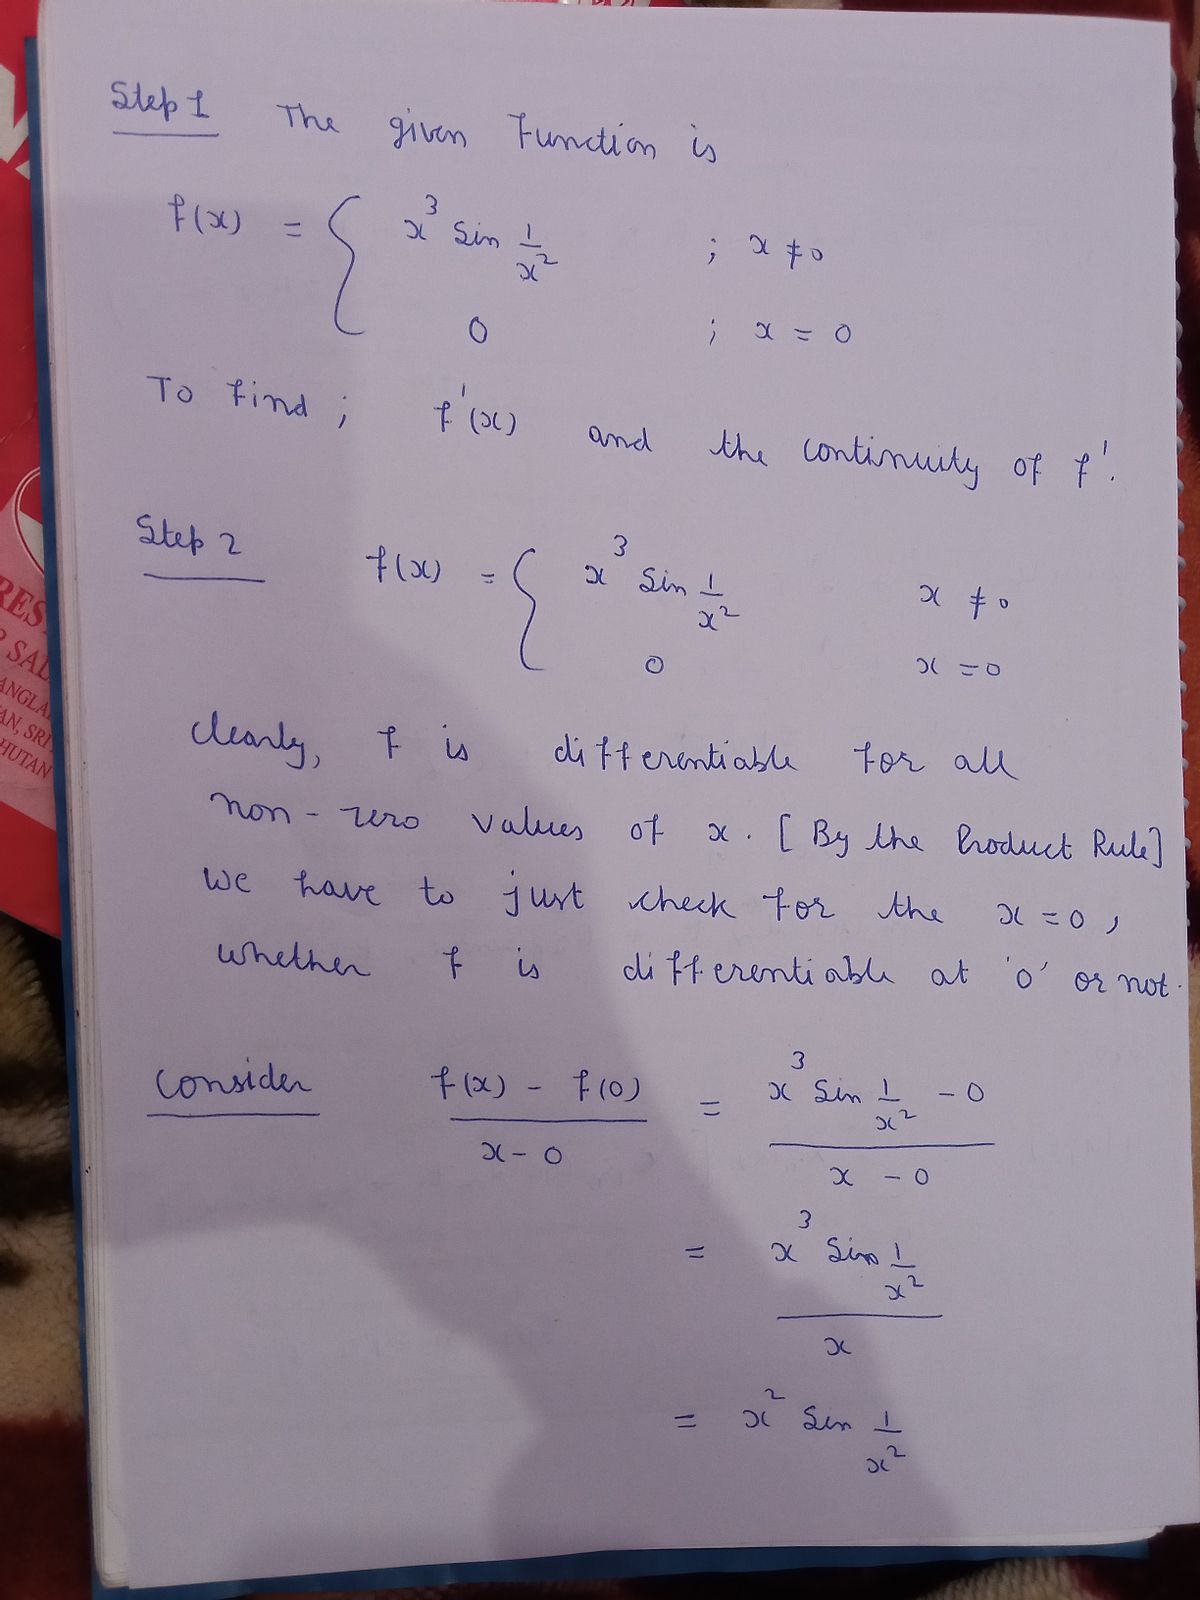 Step 1 The given Function is
f(x) = { x³ Sin 1/x² ; x ≠ 0
0 ; x = 0
To find ; f'(x) and the continuity of f'.
Step 2 f(x) = { x³ Sin 1/x² x ≠ 0
0 x = 0
clearly, f is differentiable for all
non-zero values of x. [By the Product Rule]
we have to just check for the x = 0,
whether f is differentiable at '0' or not.
Consider f(x) - f(0) / x - 0 = x³ Sin 1/x² - 0 / x - 0
= x³ Sin 1/x² / x
= x² Sin 1/x²
RES
P SAL
ANGLA
AN, SRI
HUTAN